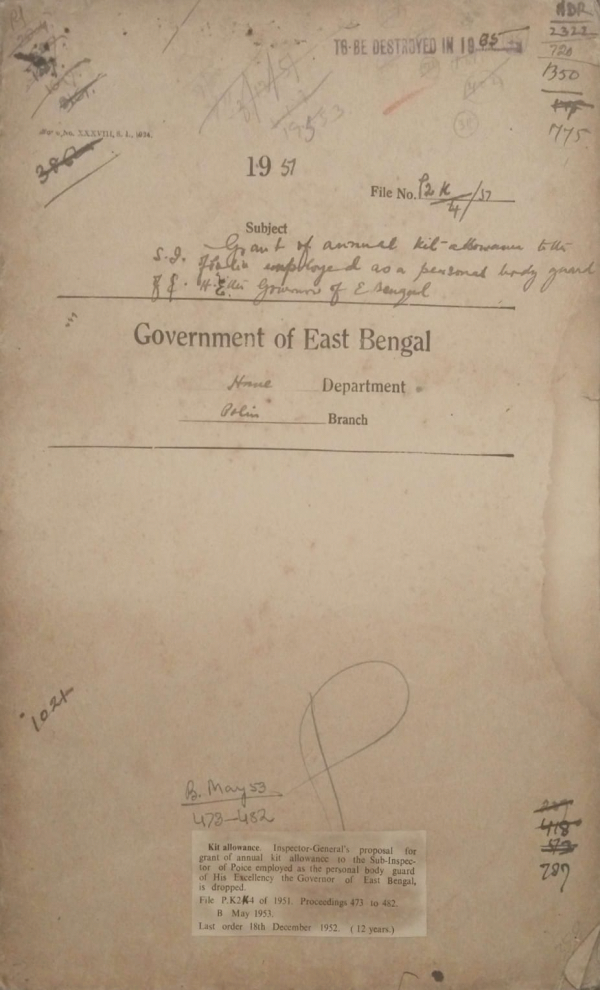 NDR
2322
TO BE DESTROYED IN 1965
720
1350
775
1953
1951
File No. P2K-4/51
Subject
Grant of annual kit-allowance to the
S.I. of Police employed as a personal body guard
H.E. the Governor of E Bengal
Government of East Bengal
Home Department
Police Branch
1021
B. May 53
473-482
418
787
Kit allowance. Inspector-General's proposal for
grant of annual kit allowance to the Sub-Inspec-
tor of Poice employed as the personal body guard
of His Excellency the Governor of East Bengal,
is dropped.
File P.K2K4 of 1951. Proceedings 473 to 482.
B May 1953.
Last order 18th December 1952. (12 years.)